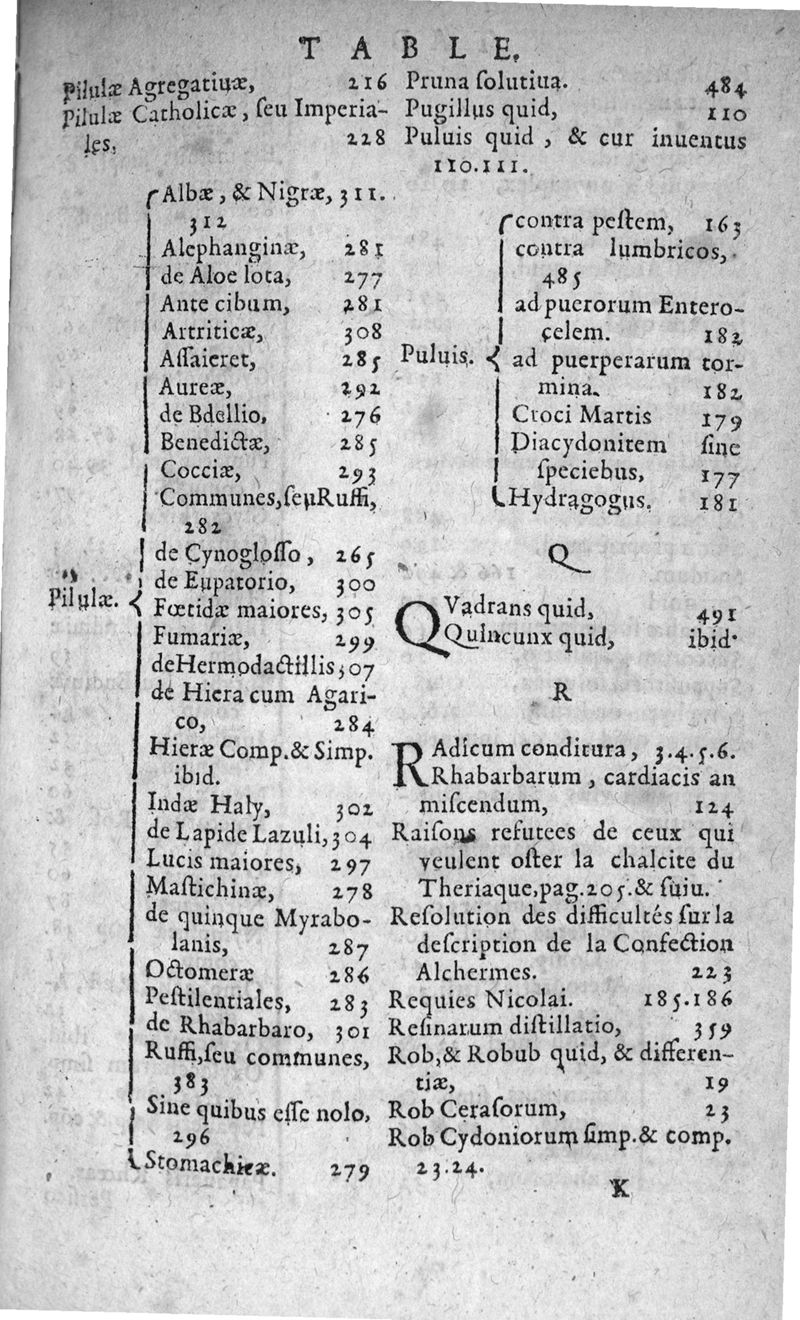 TABLE.
Pilulæ Agregatiuæ, 216
Pilulæ Catholicæ, ſeu Imperia-
les, 228
Albæ, & Nigræ, 311.
312
Alephanginæ, 281
de Aloe lota, 277
Ante cibum, 281
Artriticæ, 308
Aſſaieret, 285
Aureæ, 292
de Bdellio, 276
Benedictæ, 285
Cocciæ, 293
Communes, ſeu Ruffi,
282
de Cynogloſſo, 265
de Eupatorio, 300
Pilulæ.
Fœtidæ maiores, 305
Fumariæ, 299
de Hermodactillis 307
de Hiera cum Agari-
co, 284
Hieræ Comp. & Simp.
ibid.
Indæ Haly, 302
de Lapide Lazuli, 304
Lucis maiores, 297
Maſtichinæ, 278
de quinque Myrabo-
lanis, 287
Octomeræ 286
Peſtilentiales, 283
de Rhabarbaro, 301
Ruffi, ſeu communes,
383
Sine quibus eſſe nolo,
296
Stomachicæ. 279
Pruna ſolutiua. 484
Pugillus quid, 110
Puluis quid, & cur inuentus
110.111.
contra peſtem, 163
contra lumbricos,
485
ad puerorum Entero-
celem. 182
Puluis.
ad puerperarum tor-
mina. 182
Croci Martis 179
Diacydonitem ſine
ſpeciebus, 177
Hydragogus. 181
Q
QVadrans quid, 491
Quincunx quid, ibid.
R
RAdicum conditura, 3.4.5.6.
Rhabarbarum, cardiacis an
miſcendum, 124
Raiſons refutees de ceux qui
veulent oſter la chalcite du
Theriaque, pag. 205. & ſuiu.
Reſolution des difficultés ſur la
deſcription de la Confection
Alchermes. 223
Requies Nicolai. 185.186
Reſinarum diſtillatio, 359
Rob, & Robub quid, & differen-
tiæ, 19
Rob Ceraſorum, 23
Rob Cydoniorum ſimp. & comp.
23.24.
K